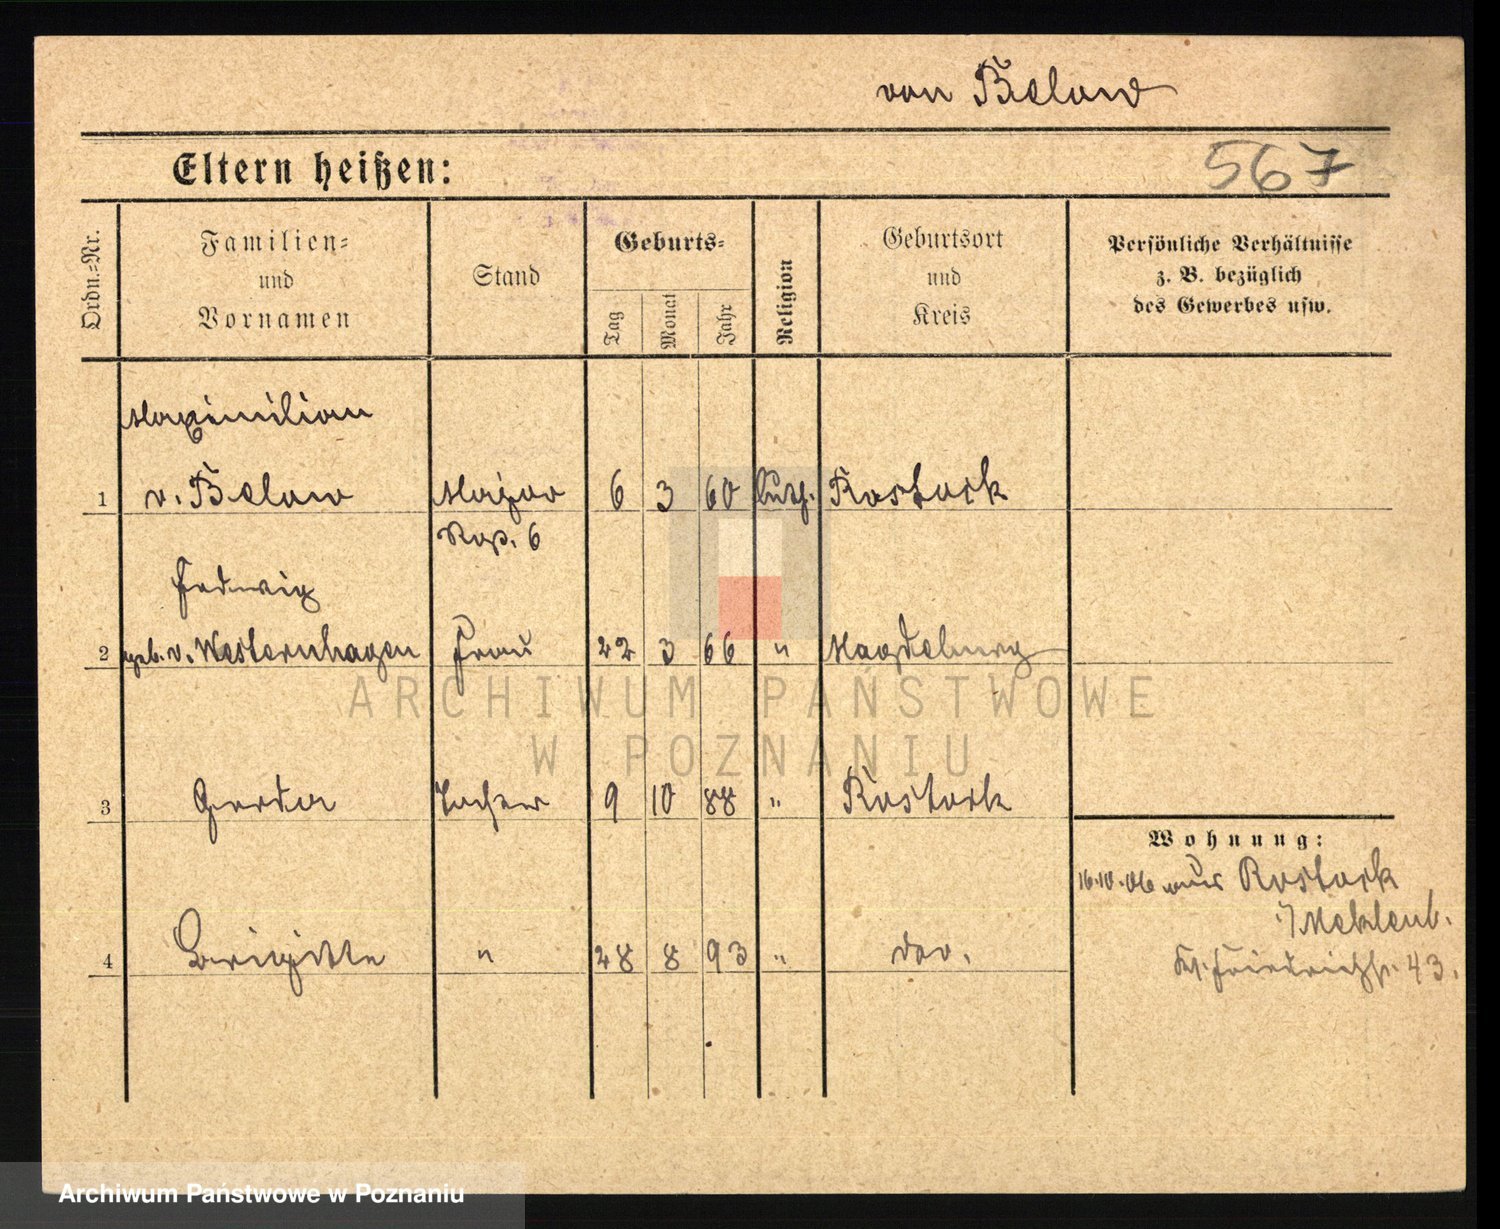 von Below
Eltern heißen:
567
Ordn.=Nr.
Familien=
und
Vornamen
Stand
Geburts=
Tag
Monat
Jahr
Religion
Geburtsort
und
Kreis
Persönliche Verhältnisse
z. B. bezüglich
des Gewerbes usw.
Maximilian
1 v. Below Major 6 3 60 Luth. Rostock
6
Hedwig
2 geb. v. Westernhagen Frau 22 3 66 " Magdeburg
3 Gerda Tochter 9 10 88 " Rostock
4 Brigitte " 28 8 93 " do.
Wohnung:
16.10.06 aus Rostock
i/Meklenb.
Friedrichstr. 43.
ARCHIWUM PAŃSTWOWE
W POZNANIU
Archiwum Państwowe w Poznaniu